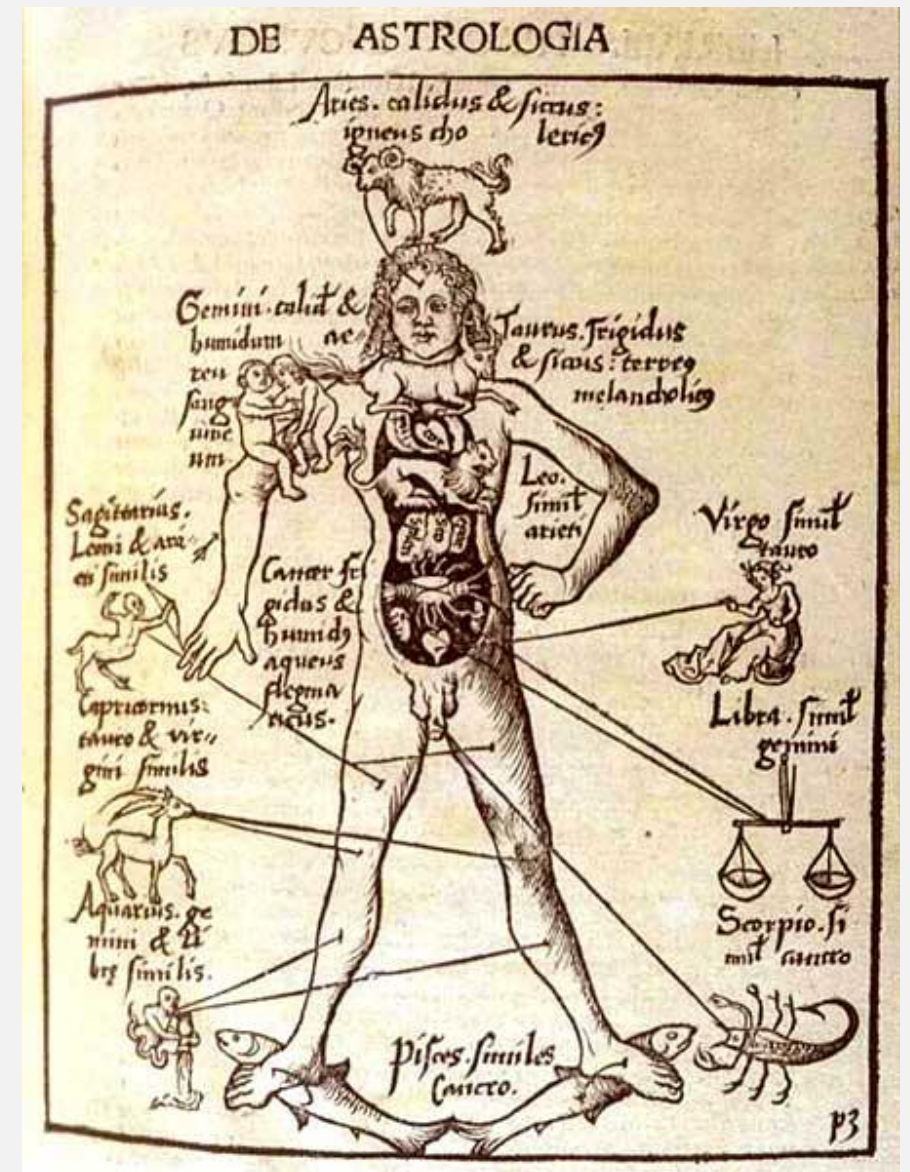 DE ASTROLOGIA
Aries. calidus & siccus:
igneus cho lericꝰ
Gemini. calid⁹ &
humidum ae-
reu
sang
uine
um.
Taurus. frigidus
& siccus: terreꝰ
melancholicꝰ
Leo.
simil
arieti
Sagitarius.
Leoni & ari-
eti similis
Cancer fri
gidus &
humidꝰ
aqueus
flegma
ticus.
Virgo simil
tauro
Capricornus:
tauro & vir-
gini similis
Libra. simil
gemini
Aquarius. ge
mini & li
brę similis.
Scorpio. si
mil cancro
Pisces. similes
Cancro.
p3